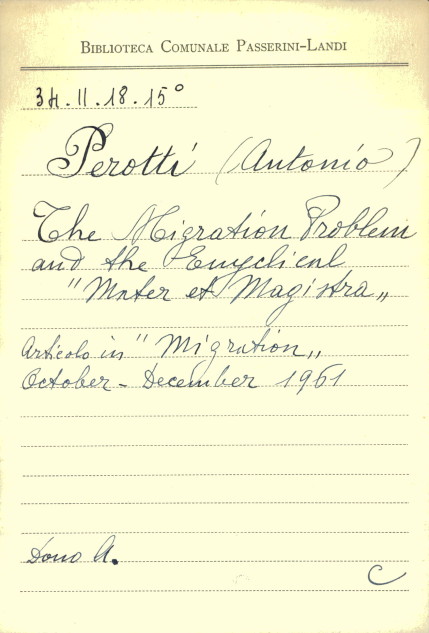 BIBLIOTECA COMUNALE PASSERINI-LANDI
34.II.18.15°
Perotti (Antonio)
The Migration Problem
and the Encyclical
"Mater et Magistra„
Articolo in "Migration„
October - December 1961
Dono A.
C